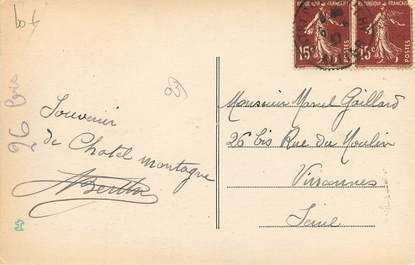 60 f
26 Gris
Souvenir
de Chatel montagne
ABerthn
RÉPUBLIQUE FRANÇAISE
15c
POSTES
RÉPUBLIQUE FRANÇAISE
15c
POSTES
Monsieur Marcel Gaillard
26 bis Rue du Moulin
Vincennes
Seine